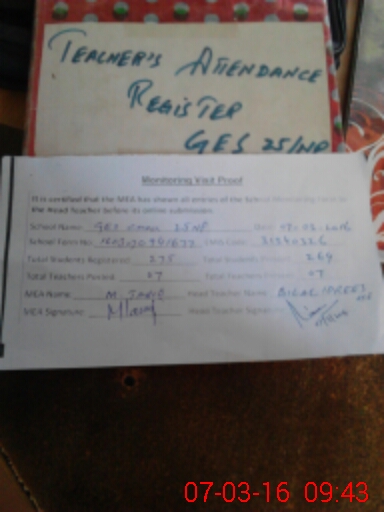 TEACHER'S ATTENDANCE
REGISTER
GES 25/NP
Monitoring Visit Proof
It is certified that the MEA has shown all entries of the School Monitoring Form to
the Head Teacher before its online submission.
School Name: GES 25NP Date: 07-03-2016
School Form No: EMIS Code: 31340326
Total Students Registered: 275 Total Students Present: 269
Total Teachers Posted: 07 Total Teachers Present: 07
MEA Name: M. Head Teacher Name: BILAL IDREES
MEA Signature: Head Teacher Signature:
07-03-16 09:43